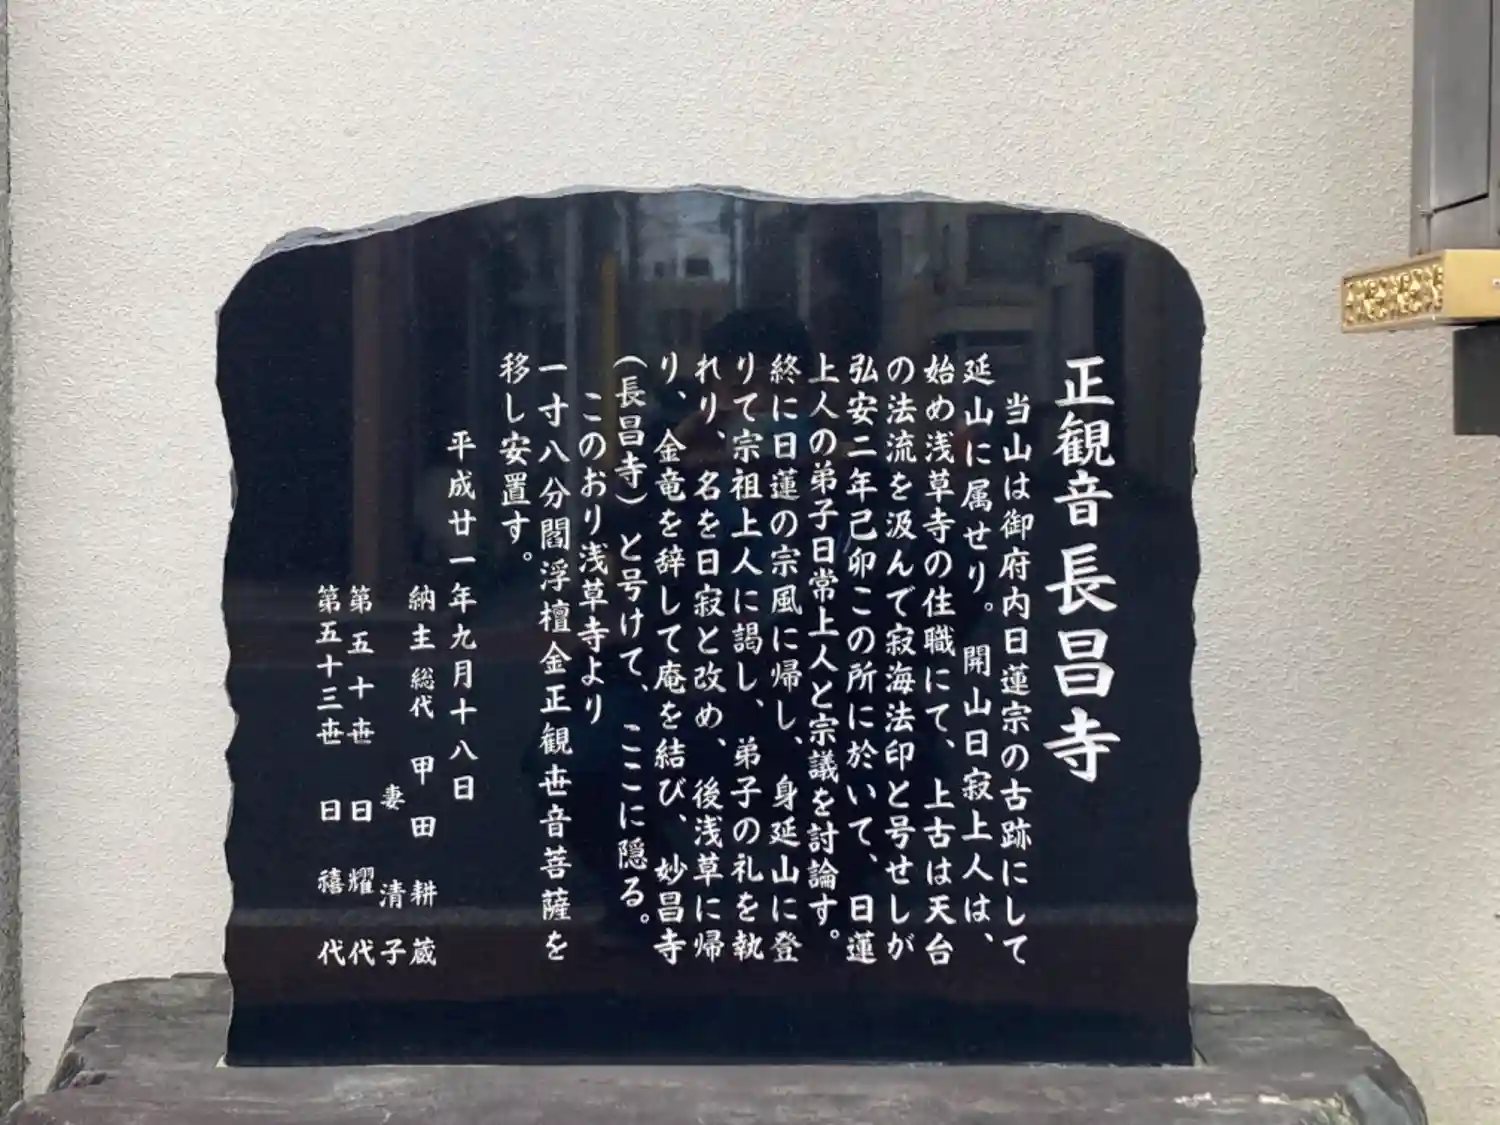 正観音長昌寺
当山は御府内日蓮宗の古跡にして
延山に属せり。開山日寂上人は、
始め浅草寺の住職にて、上古は天台
の法流を汲んで寂海法印と号せしが
弘安二年己卯この所に於いて、日蓮
上人の弟子日常上人と宗議を討論す。
終に日蓮の宗風に帰し、身延山に登
りて宗祖上人に謁し、弟子の礼を執
れり、名を日寂と改め、後浅草に帰
り、金竜を辞して庵を結び、妙昌寺
(長昌寺)と号けて、ここに隠る。
このおり浅草寺より
一寸八分閻浮檀金正観世音菩薩を
移し安置す。
平成廿一年九月十八日
納主総代 甲田耕蔵
妻 清子
第五十世 日耀代
第五十三世 日禧代